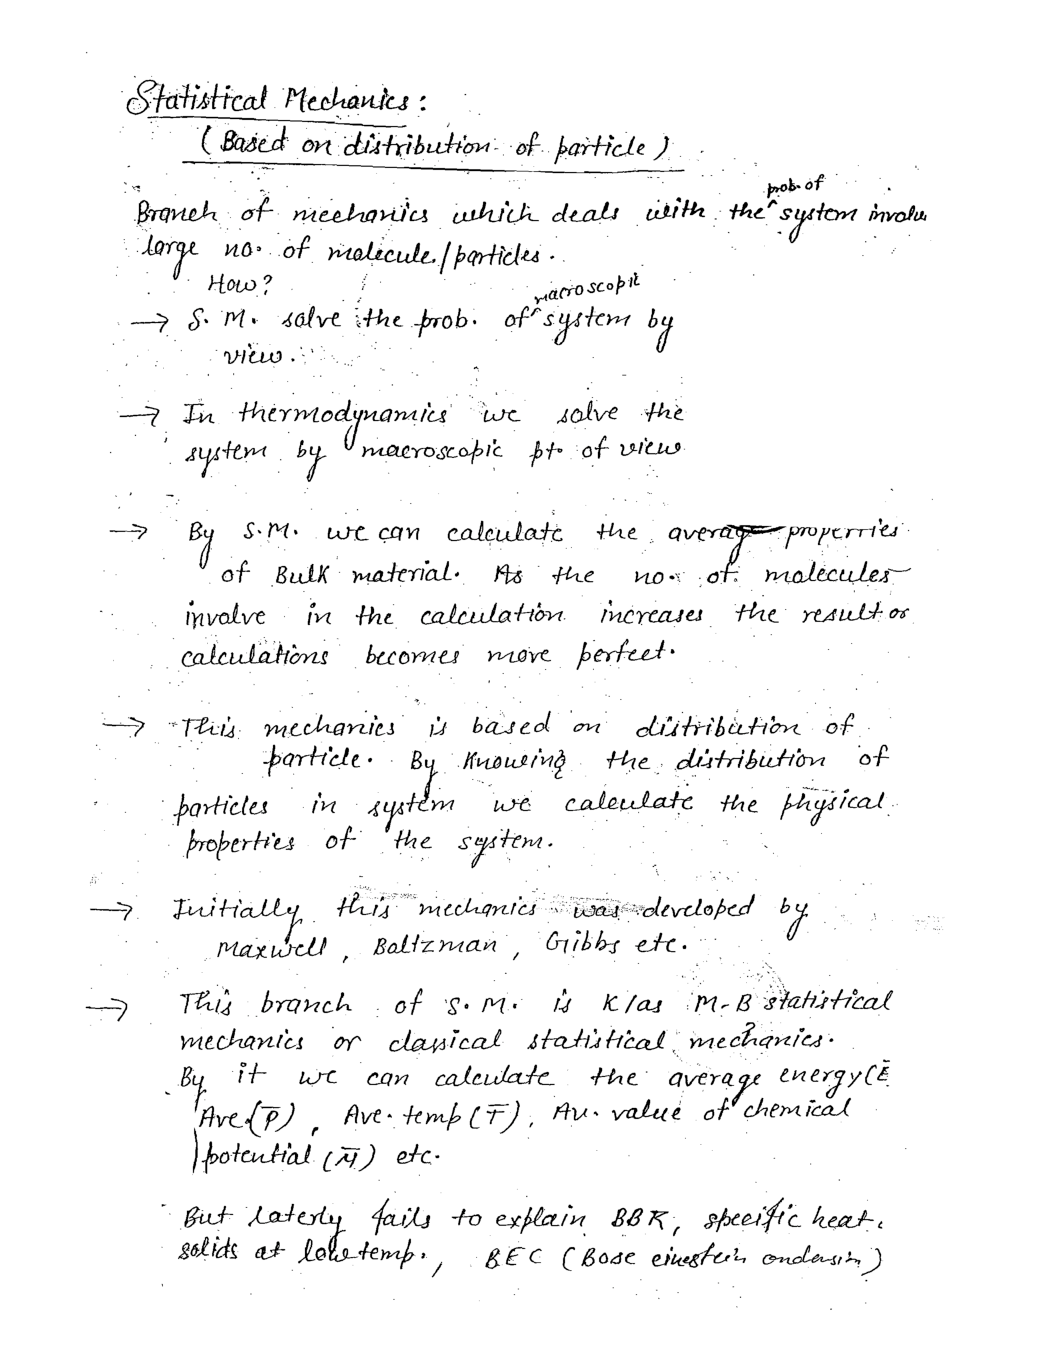 Statistical Mechanics :
(Based on distribution of particle)
prob. of
Branch of mechanics which deals with the ^ system involve
large no. of molecule/particles.
How?
macroscopic
→ S. M. solve the prob. of ^ system by
view.
→ In thermodynamics we solve the
system by macroscopic pt. of view
→ By S.M. we can calculate the average properties
of Bulk material. As the no. of molecules
involve in the calculation increases the result or
calculations becomes more perfect.
→ This mechanics is based on distribution of
particle. By Knowing the distribution of
particles in system we calculate the physical
properties of the system.
→ Initially this mechanics was developed by
Maxwell, Boltzman, Gibbs etc.
→ This branch of S.M. is K/as M-B statistical
mechanics or classical statistical mechanics.
By it we can calculate the average energy (E̅
Ave. (P̅), Ave. temp (T̅), Av. value of chemical
potential (μ̅) etc.
But laterly fails to explain BBR, specific heat
solids at low temp., BEC (Bose einestein ondensin)